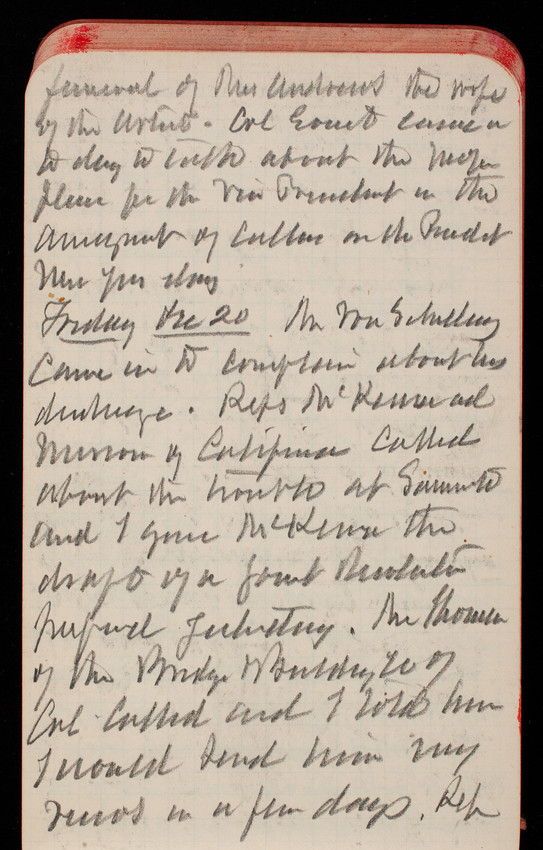 funeral of Mrs Andrews the wife
of the Artist. Col Ernst came in
to day to talk about the
place for the Vice President in the
arrangement of callers on the Presdt
New Years day
Friday Dec 20 Mr Von Schulling
Came in to complain about his
discharge. Reps McKenna and
Morrow of California Called
about the trouble at
and I gave McKenna the
draft of a Joint Resolution
prepared yesterday. Mr Thomson
of the Bridge & Building Co of
Col called and I told him
I would send him my
views in a few days. Rep